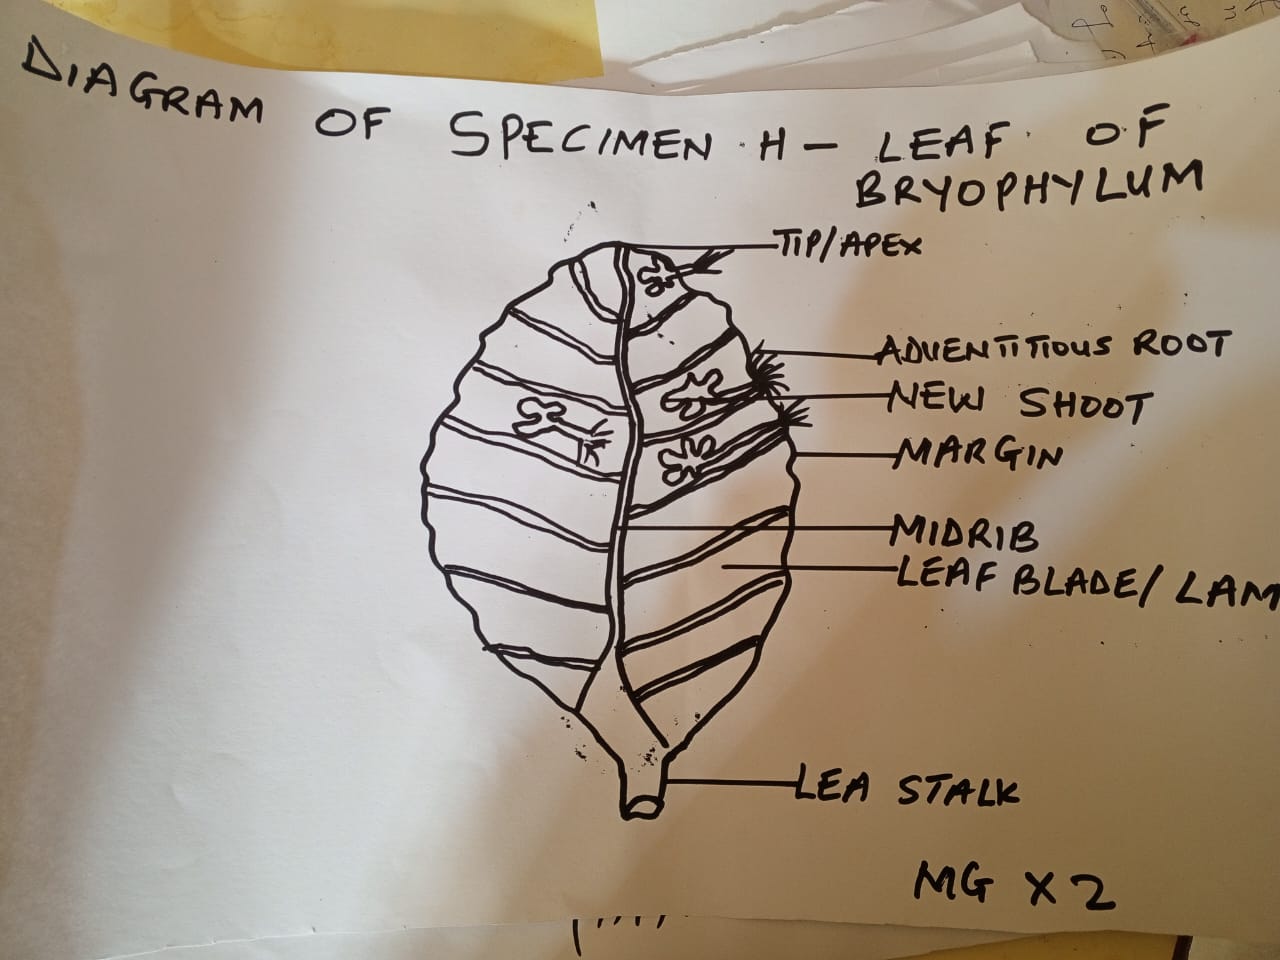 DIAGRAM OF SPECIMEN H- LEAF OF
BRYOPHYLUM
TIP/APEX
ADVENTITIOUS ROOT
NEW SHOOT
MARGIN
MIDRIB
LEAF BLADE/ LAM
LEA STALK
MG X 2